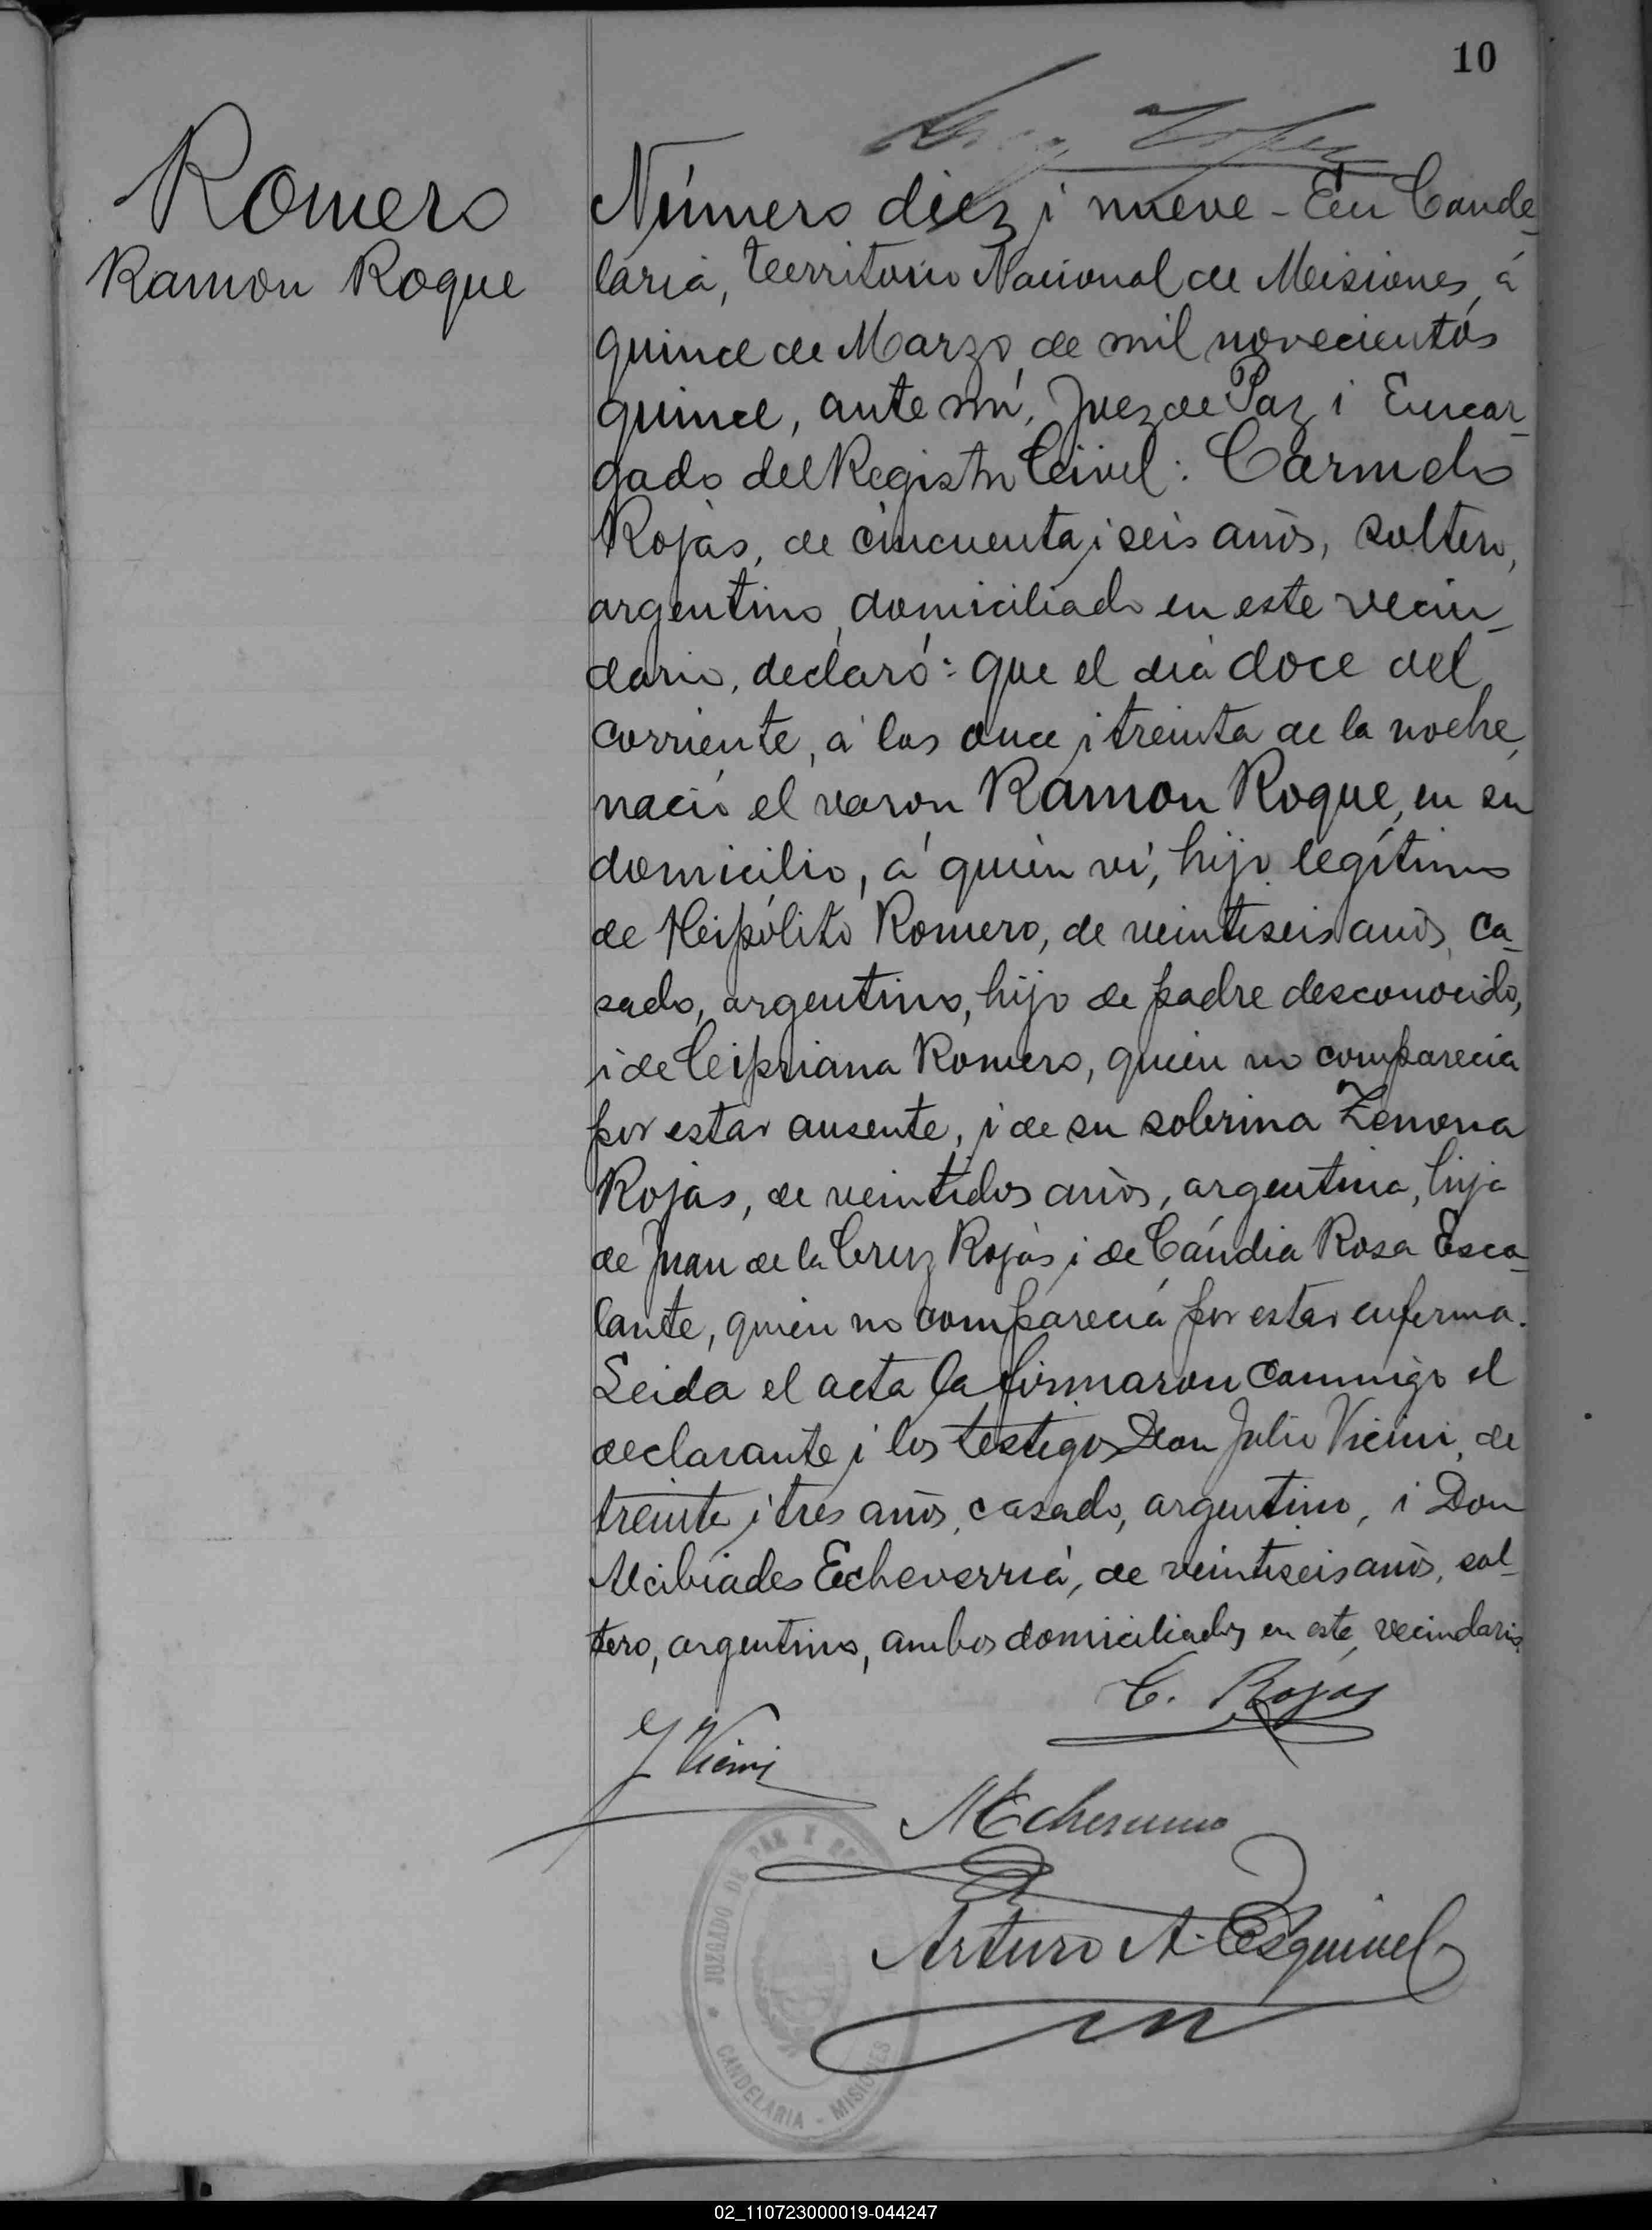 10
Romero
Ramon Roque
Número diez i nueve - En Cande-
laria, territorio Nacional de Misiones, á
quince de Marzo de mil novecientos
quince, ante mí, Juez de Paz i Encar-
gado del Registro Civil: Carmelo
Rojas, de cincuenta i seis años, soltero,
argentino, domiciliado en este vecin-
dario, declaró: que el dia doce del
corriente, á las once i treinta de la noche,
nació el varon Ramon Roque, en su
domicilio, á quien ví, hijo legítimo
de Hipólito Romero, de veintiseis años, ca-
sado, argentino, hijo de padre desconocido,
i de Cipriana Romero, quien no comparecia
por estar ausente, i de su sobrina Zenona
Rojas, de veintidos años, argentina, hija
de Juan de la Cruz Rojas i de Cándia Rosa Esca-
lante, quien no comparecia por estar enferma.
Leida el acta la firmaron conmigo el
declarante i los testigos Don Julio Vicini, de
treinta i tres años, casado, argentino, i Don
Alcibiades Echeverria, de veintiseis años, sol-
tero, argentino, ambos domiciliados en este vecindario.
C. Rojas
J Vicini
Arturo A. Esquivel
JUZGADO DE PAZ Y
CANDELARIA - MISIONES
02_110723000019-044247